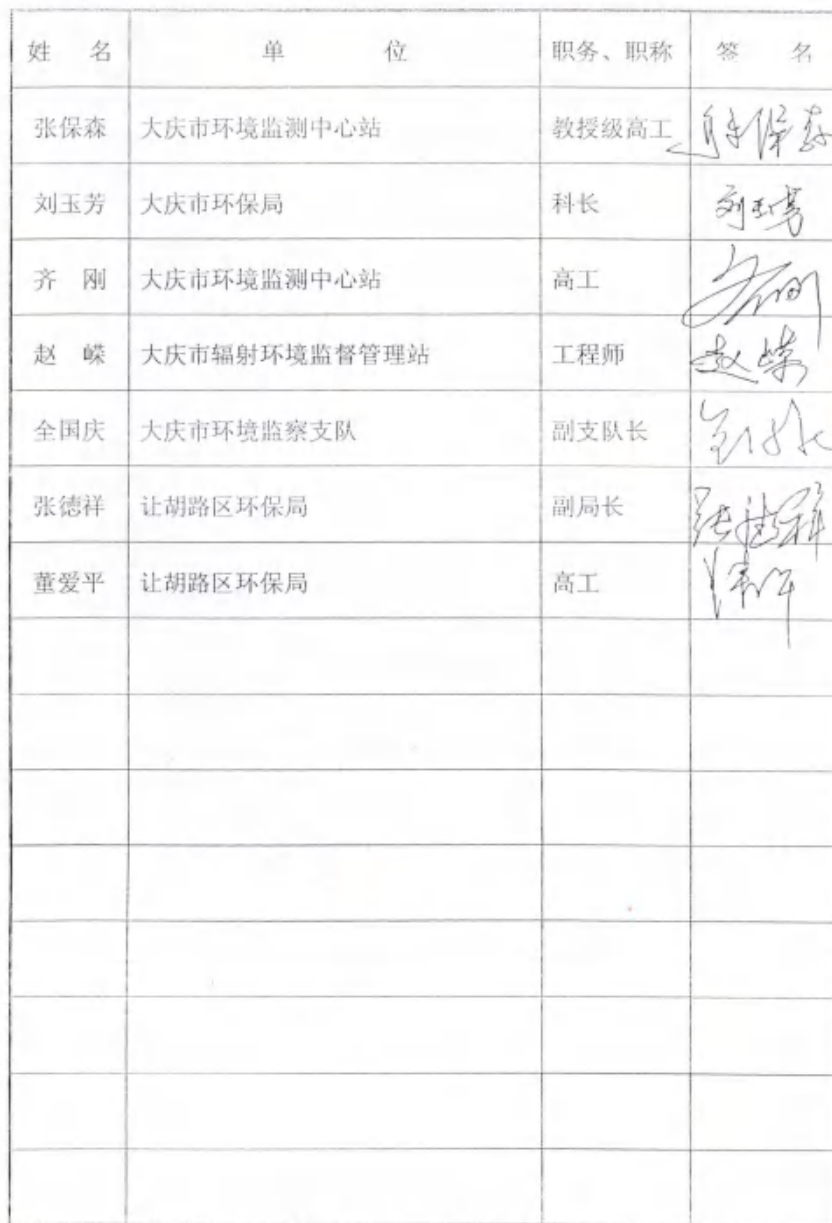 姓 名 单 位 职务、职称 签 名
张保森 大庆市环境监测中心站 教授级高工
刘玉芳 大庆市环保局 科长 刘玉芳
齐 刚 大庆市环境监测中心站 高工
赵 嵘 大庆市辐射环境监督管理站 工程师 赵嵘
全国庆 大庆市环境监察支队 副支队长
张德祥 让胡路区环保局 副局长 张德祥
董爱平 让胡路区环保局 高工